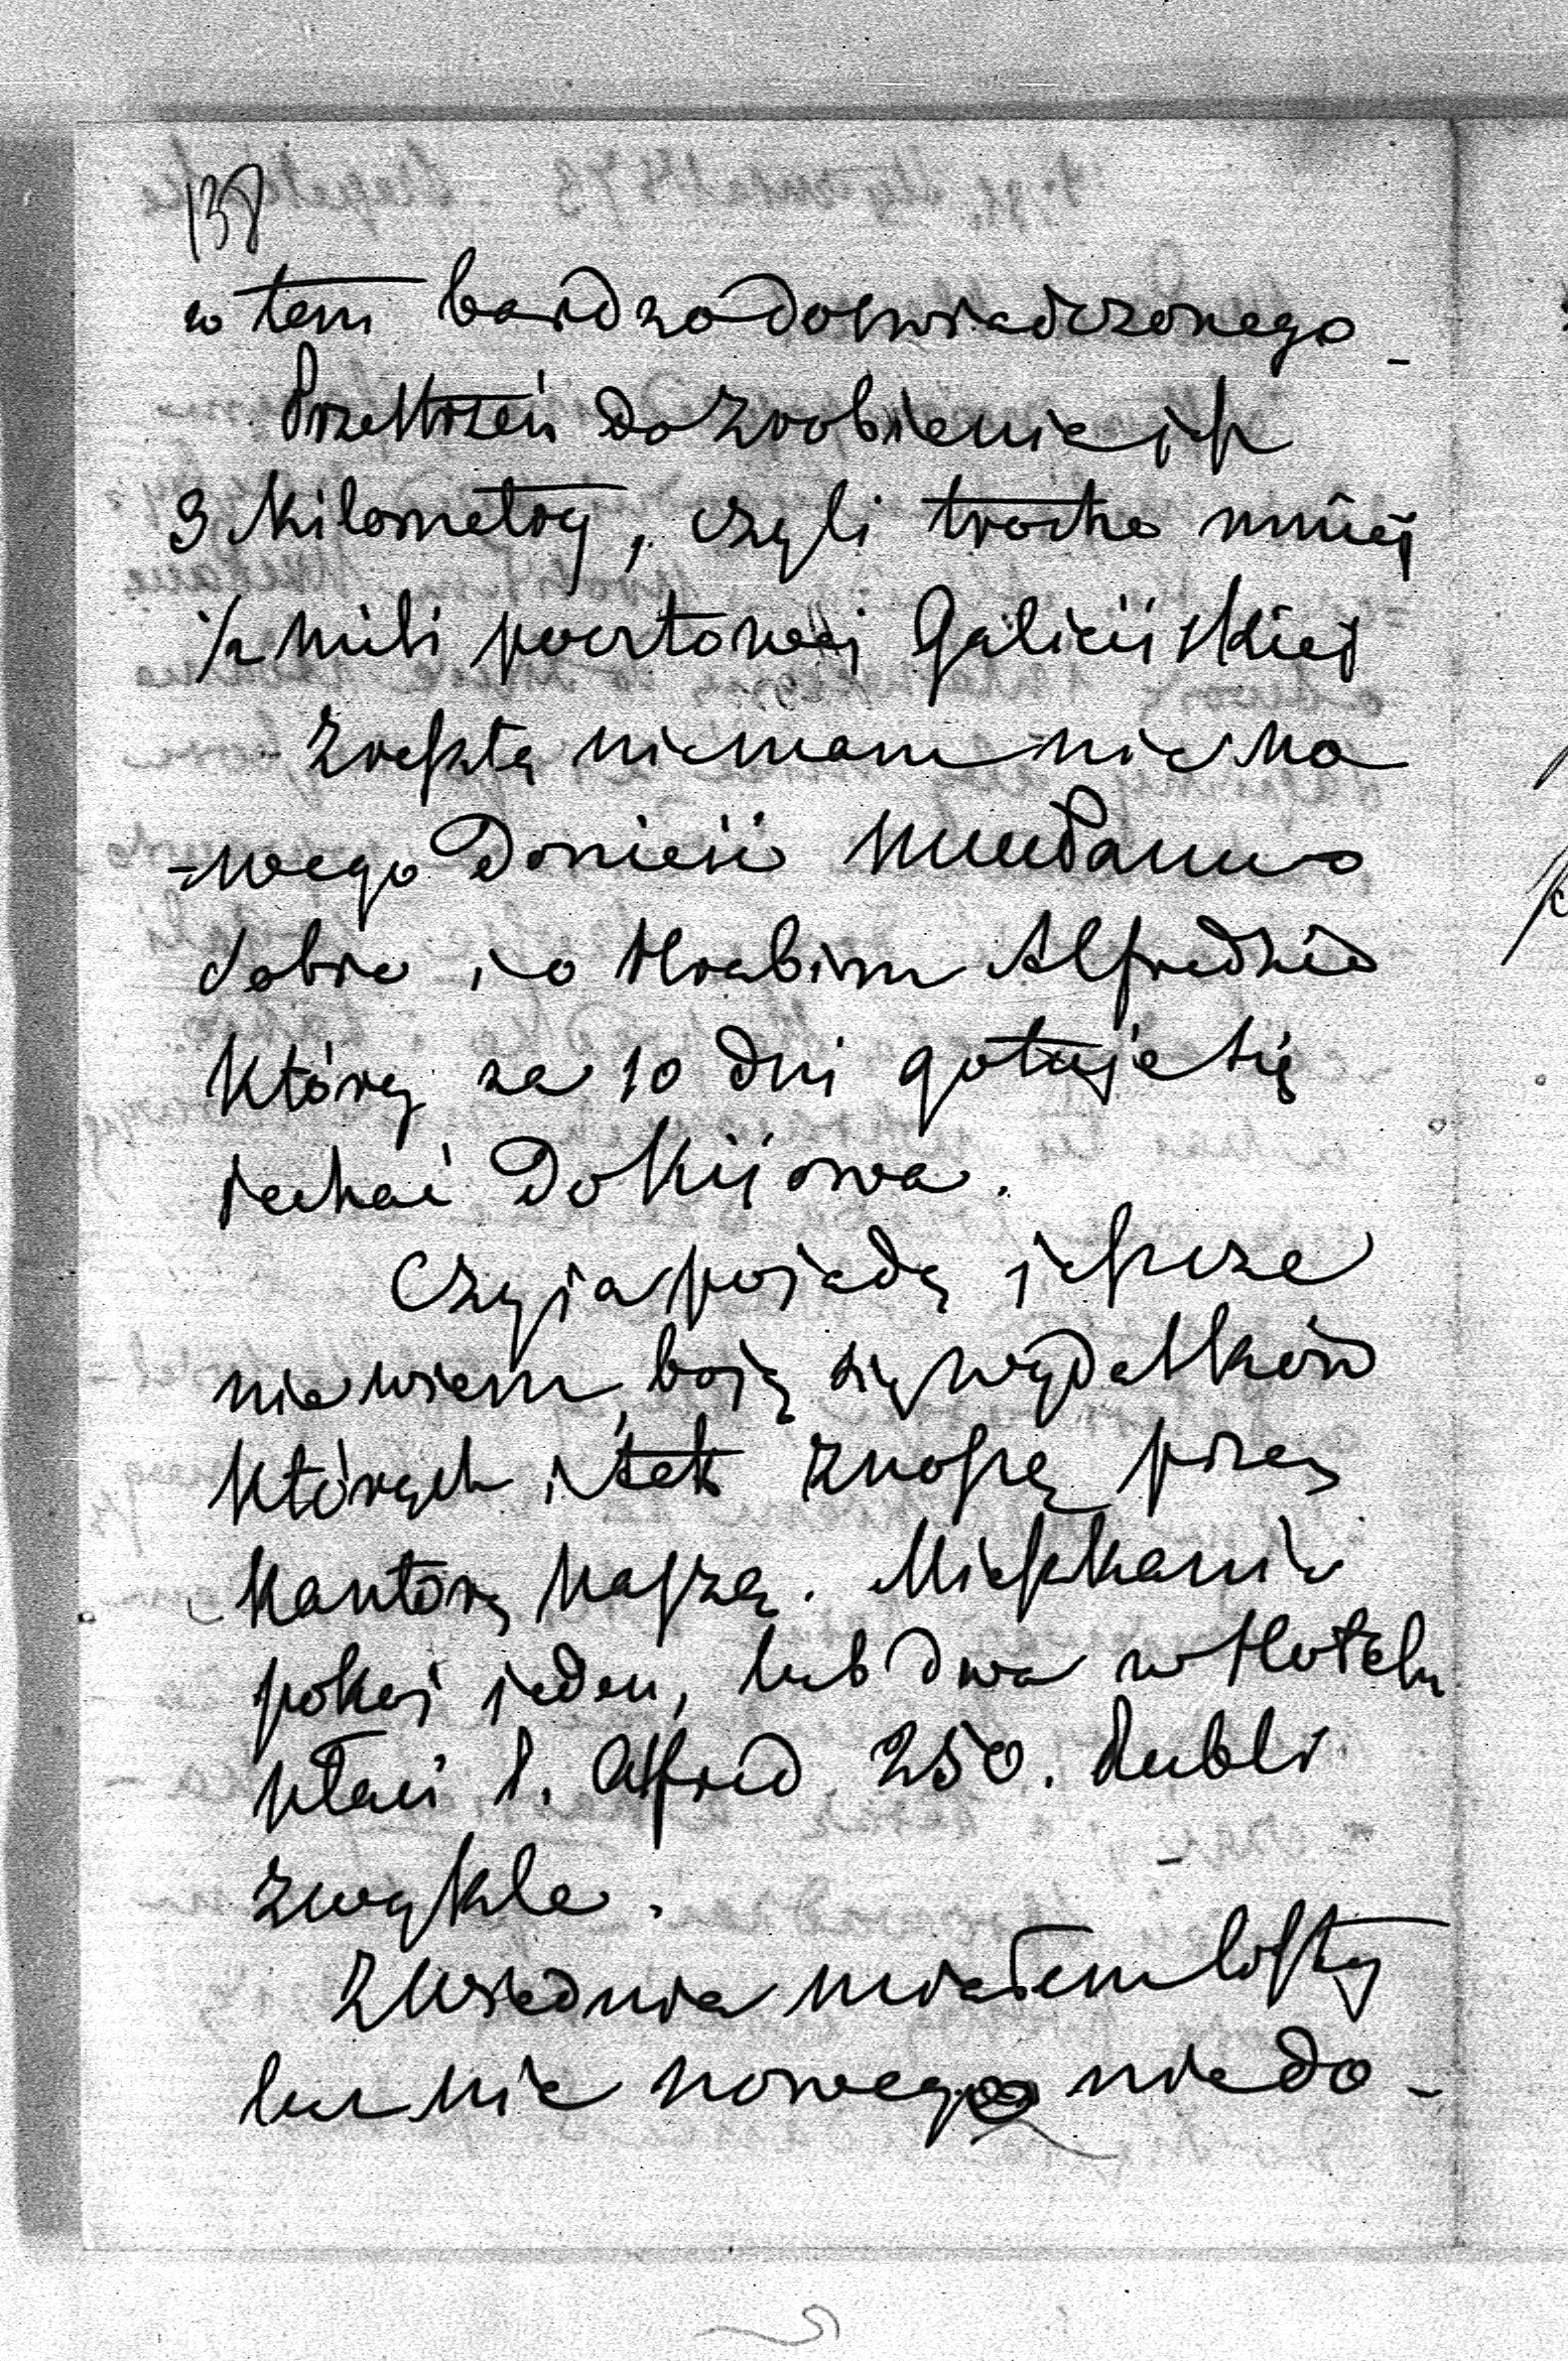 138
w tem bardzo doświadczonego
Przestrzeń do zrobienia jest
3 kilometry, czyli trocha mniej
1/2 mili pocztowej Galicijskiej
Zresztą nie mam nic no
-wego donieść
dobre i o Hrabim Alfredzie
który za 10 dni gotuje się
jechać do Kijowa.
Czy ja pojadę jeszcze
nie wiem, boję się wydatków
których i tak znoszę przez
kantorę naszą. Mieszkanie
pokoj jeden, lub dwa w Hotelu
płaci P. Alfred 250. Rubli
zwykle.
Z Wiednia miałem listy
lecz nic nowego nie do-